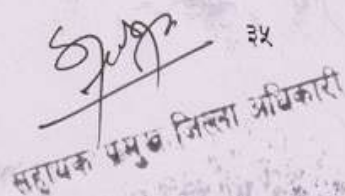 ३५
सहायक प्रमुख जिल्ला अधिकारी